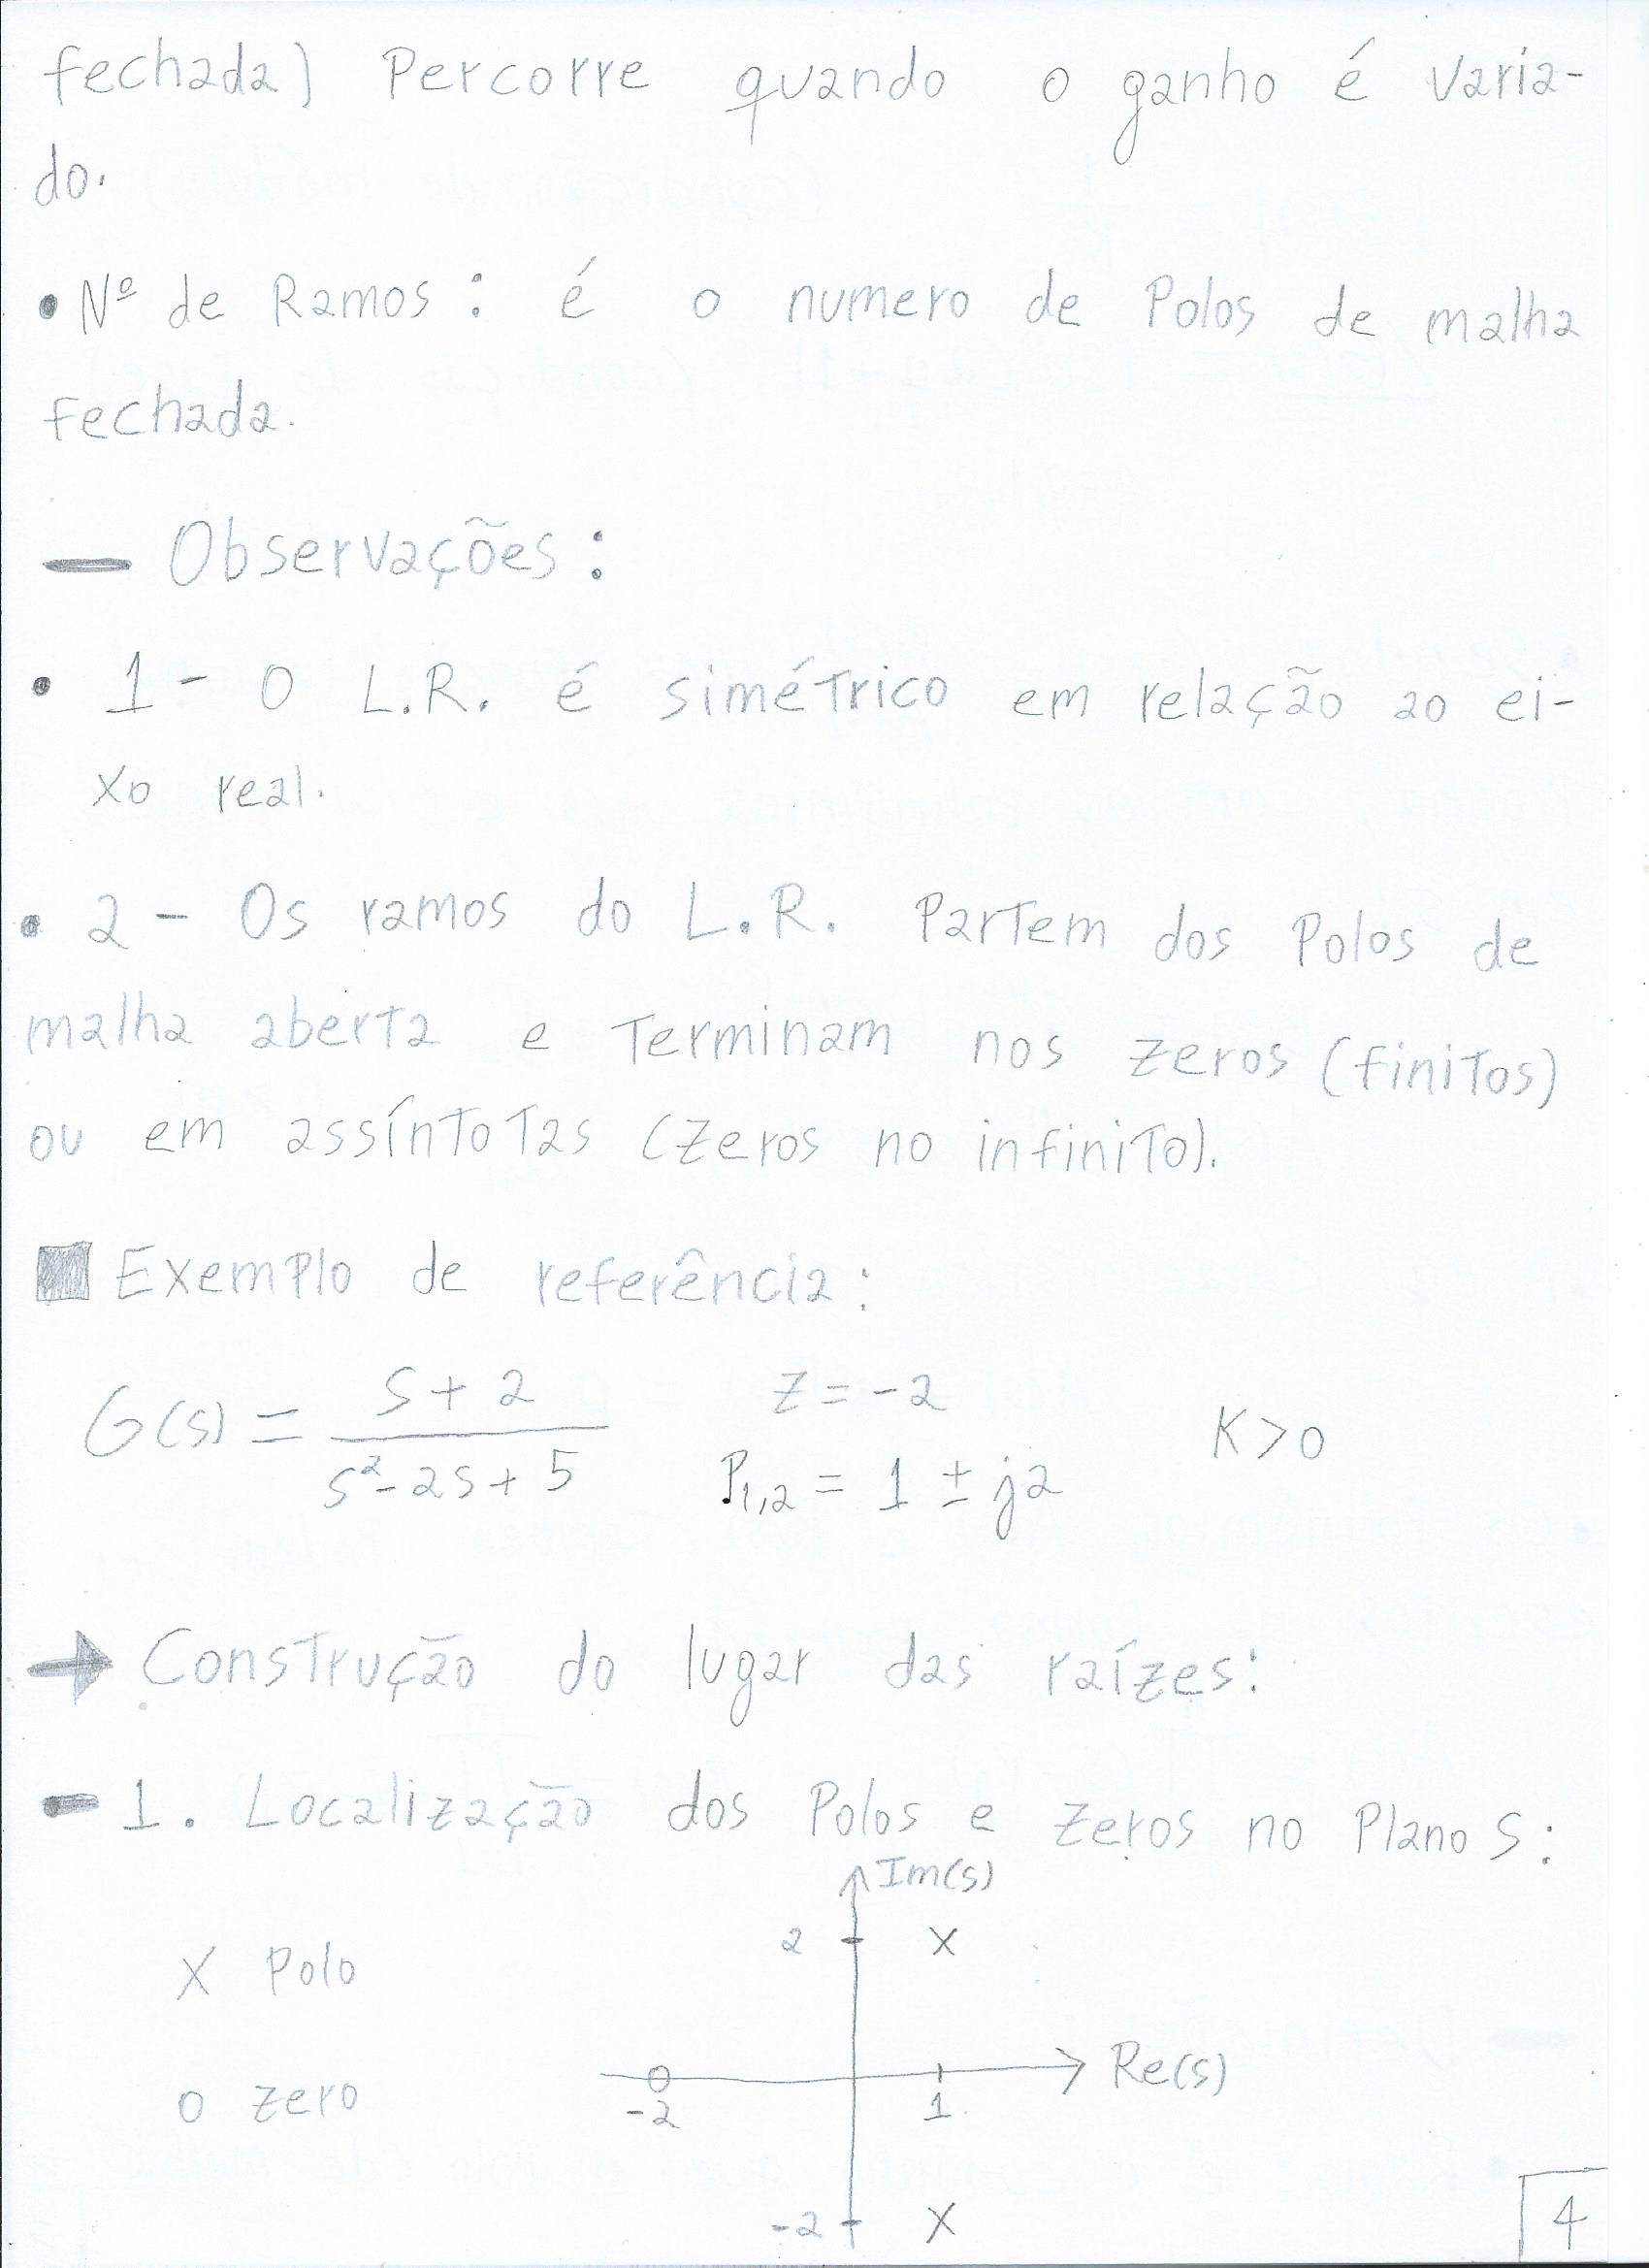 fechada) Percorre quando o ganho é varia-
do.
• Nº de Ramos: é o numero de Polos de malha
fechada.
— Observações:
• 1 - O L.R. é simétrico em relação ao ei-
xo real.
• 2 - Os ramos do L.R. Partem dos Polos de
malha aberta e Terminam nos zeros (finitos)
ou em assíntotas (zeros no infinito).
■ Exemplo de referência:
G(s) = (s + 2)/(s² - 2s + 5) z = -2 P₁,₂ = 1 ± j2 K > 0
→ Construção do lugar das raízes:
- 1. Localização dos Polos e zeros no Plano S:
Im(s)
X Polo 2 X
Re(s)
o zero -2 1
-2 X
4